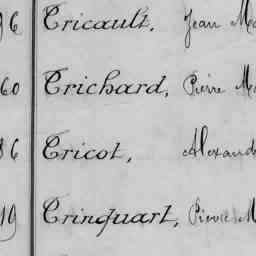 96 Tricault, Jean Ma
60 Trichard, Pierre Ma
36 Tricot, Alexand
19 Trinquart, Pierre M